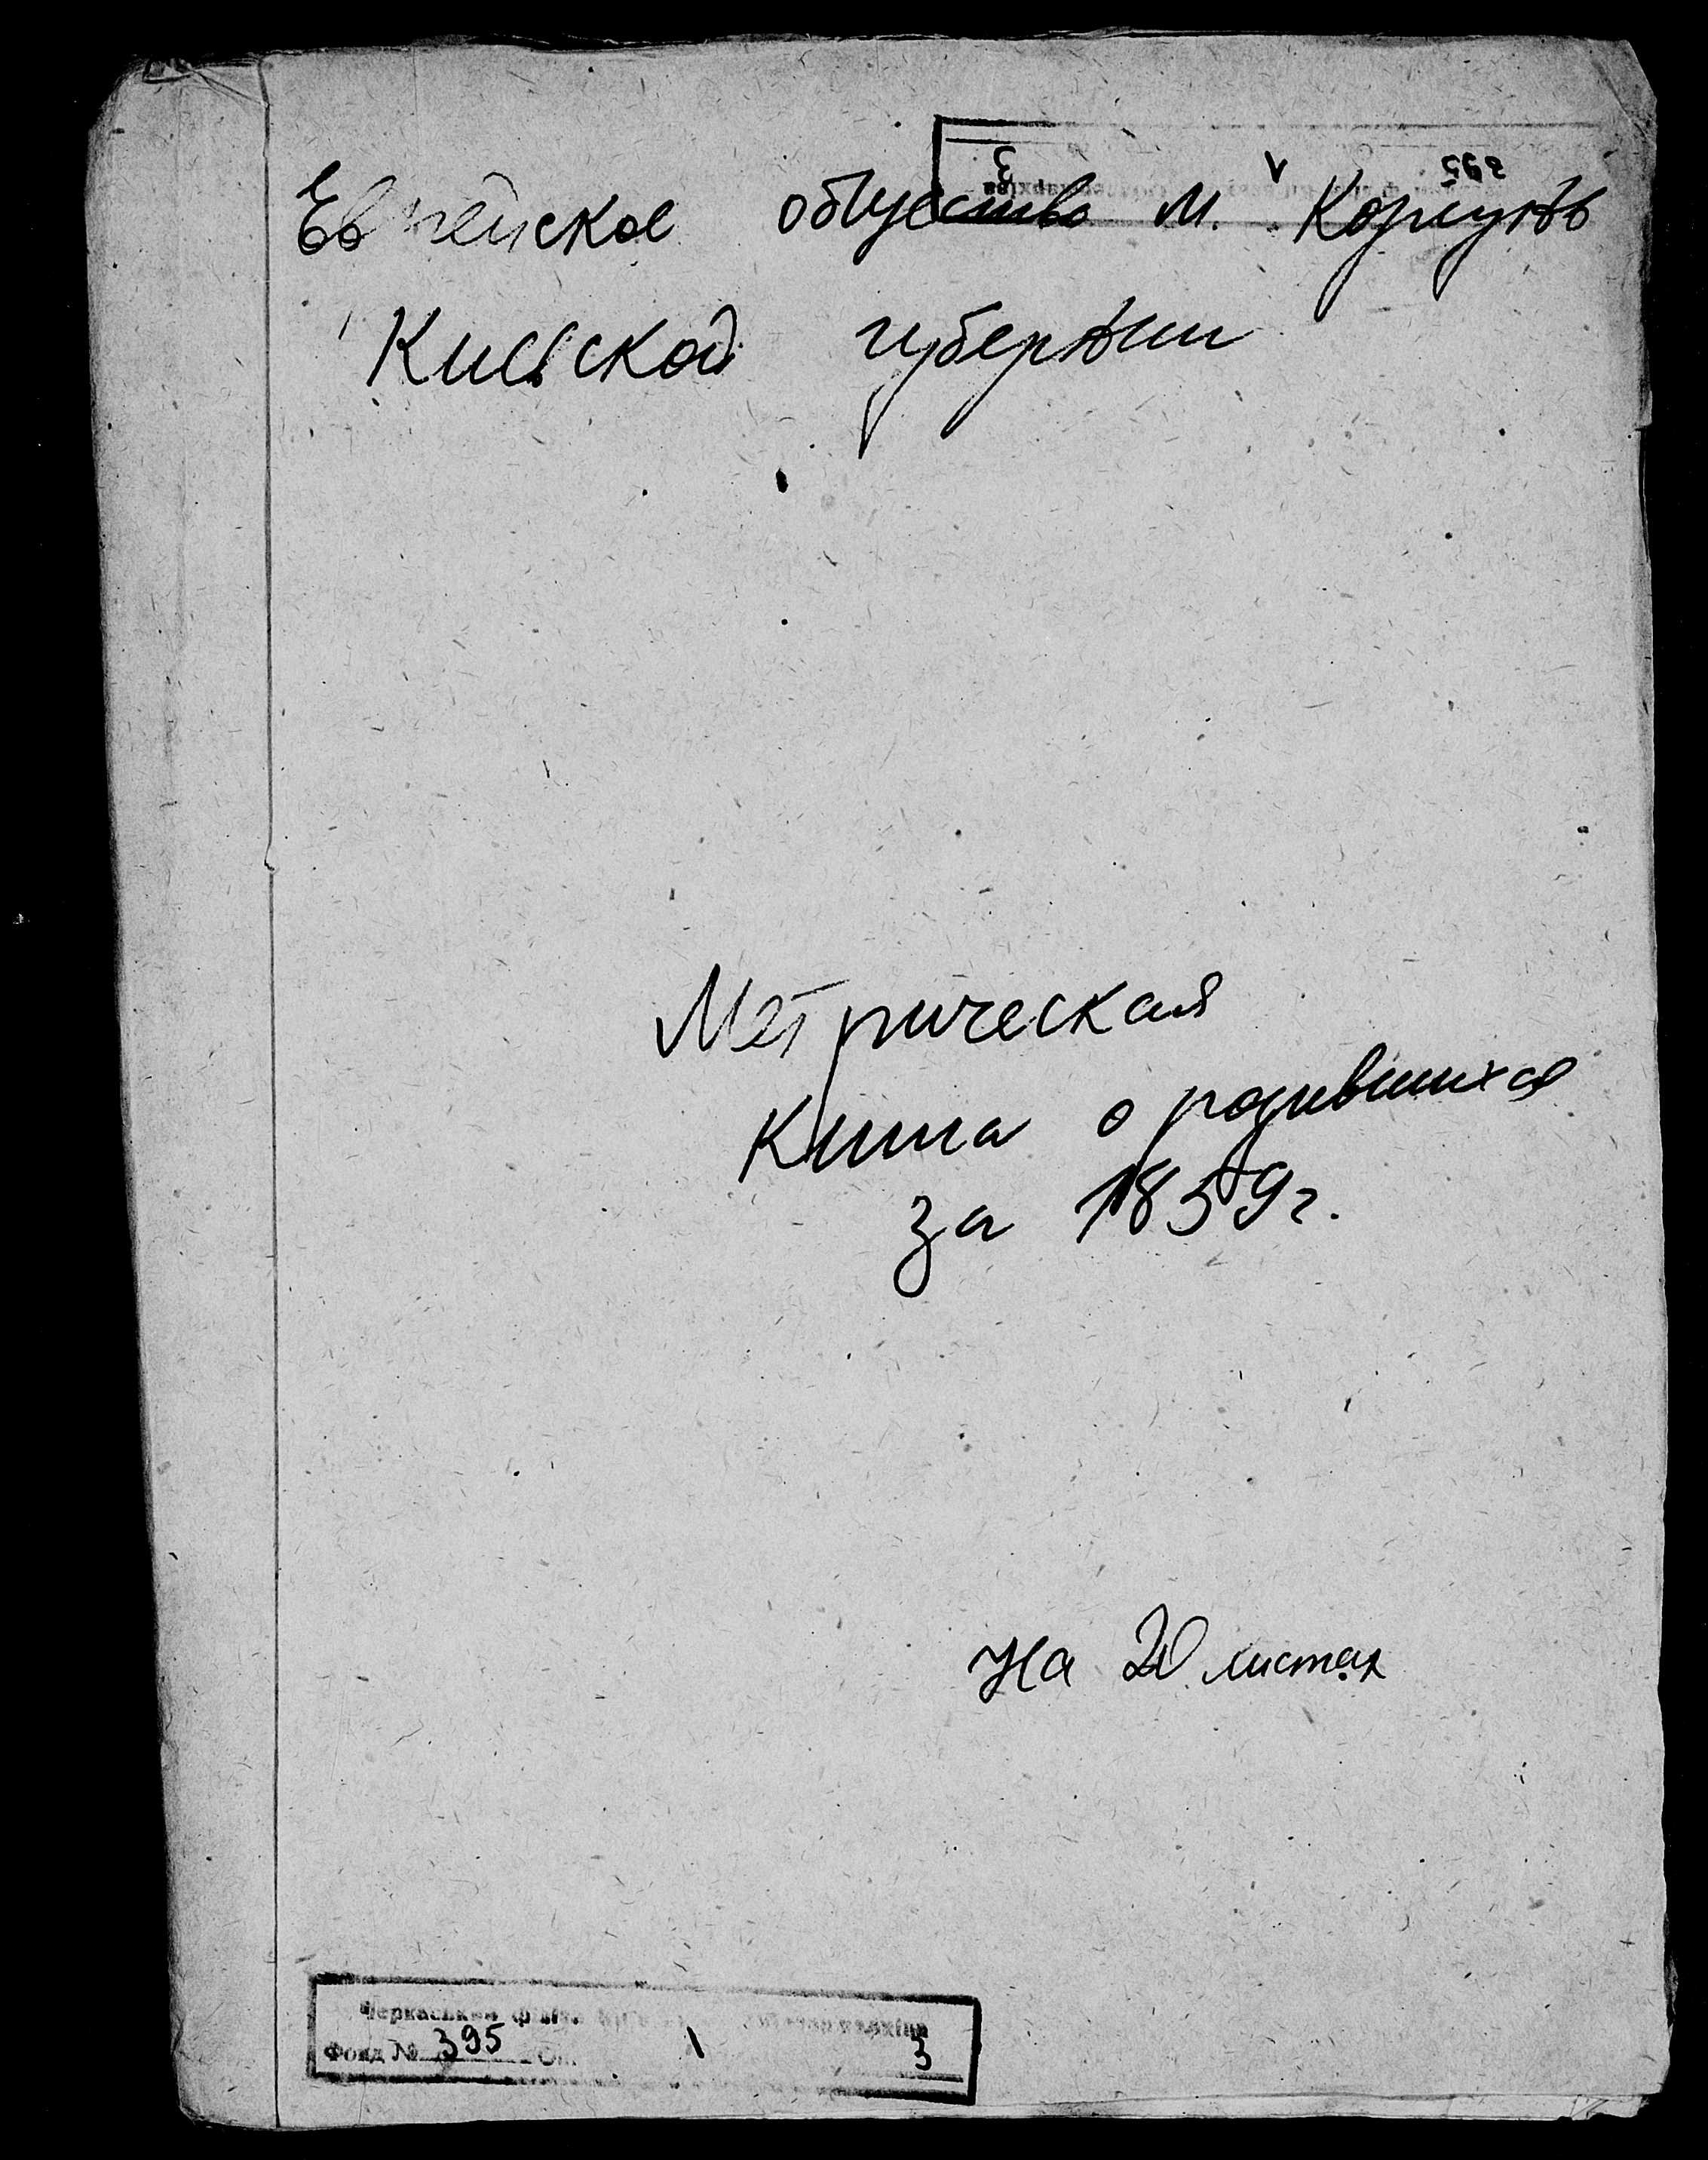 Еврейское общество м. Корсунь
Киевской губернии
Метрическая
книга о родившихся
за 1859 г.
На 20 листах
Черкаський філіал
Фонд № 395 Оп. 1 3